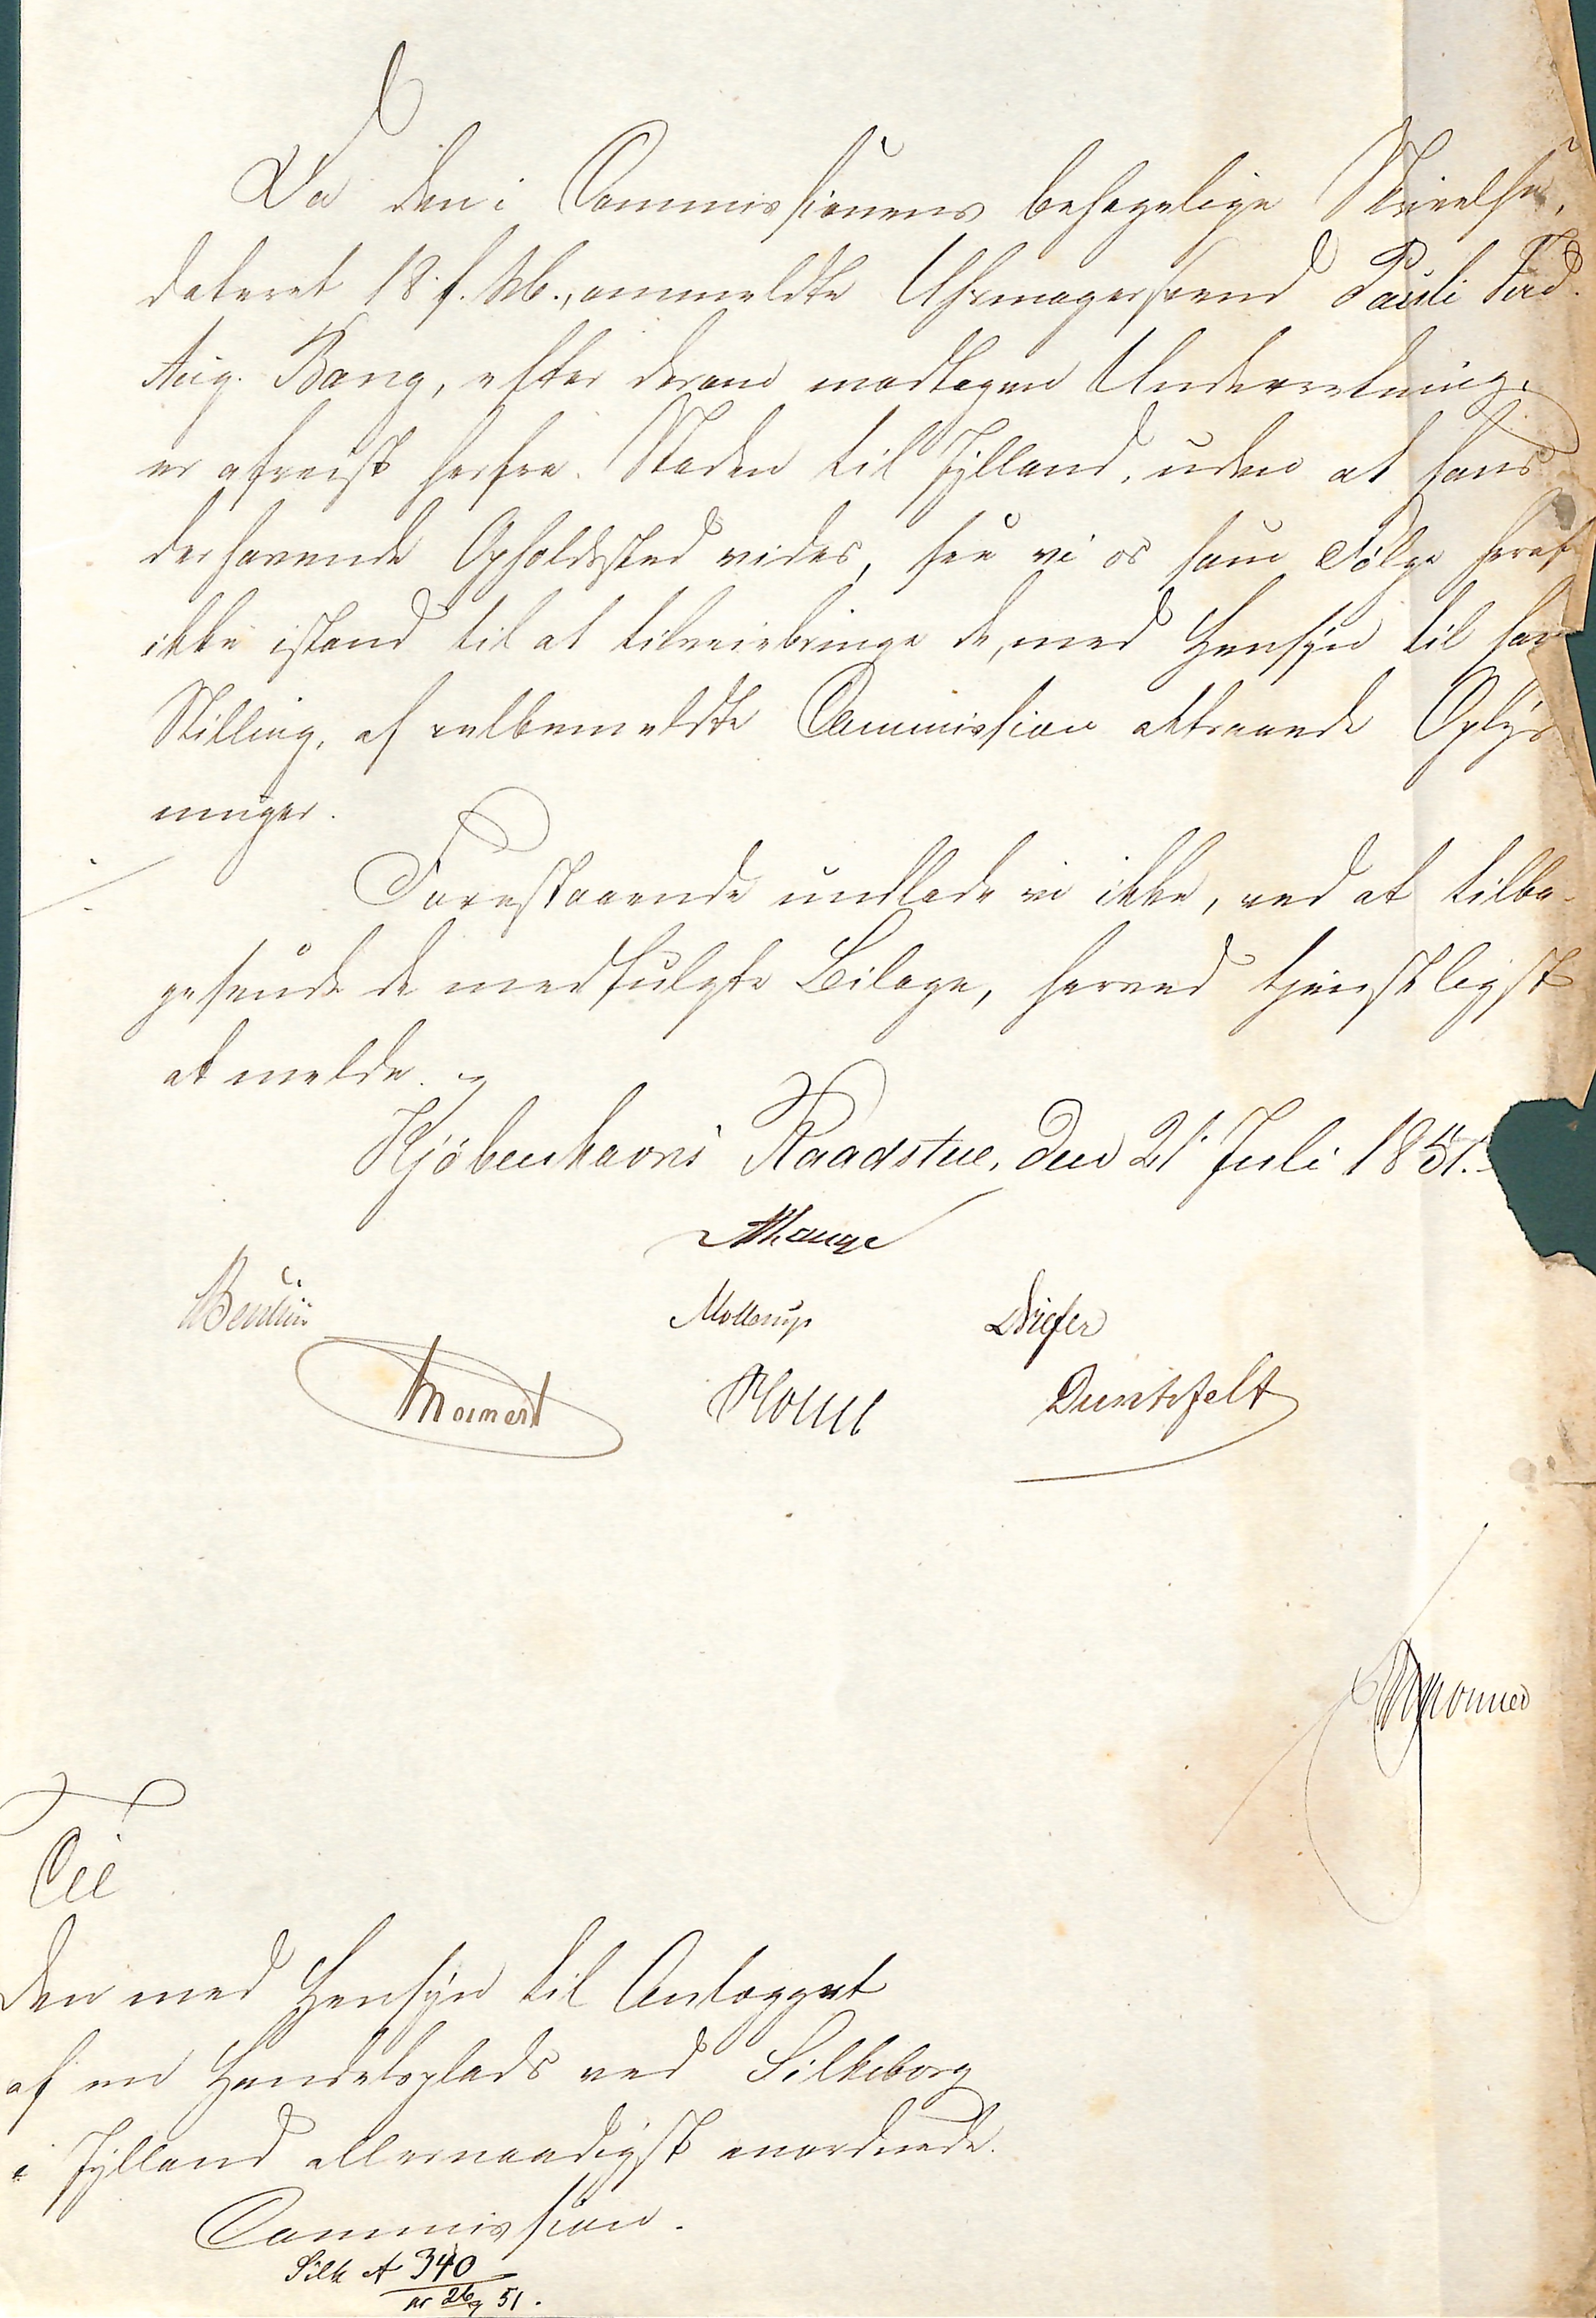 Da den i Commissionens behagelige Skrivelse,
dateret 18 f. M., ommeldte Uhrmagersvend Pauli Ferd.
Aug. Bang, efter derom modtagen Underretning,
er afreist herfra Staden til Jylland, uden at hans
derværende Opholdssted vides, see vi os som Følge heraf
ikke istand til at tilveiebringe de, med Hensyn til hans
Stilling, af velbemeldte Commission attraaede Oplys
ninger.
Forestaaende undlade vi ikke, ved at tilba-
gesende de medfulgte Bilage, herved tjenstligst
at melde.
Kjöbenhavns Raadstue, den 21 Juli 1851.
Mollerup
Duntzfelt
Til
den med Hensyn til Anlægget
af en Handelsplads ved Silkeborg
i Jylland allernaadigst anordnede
Commission.
Silk A 340
51.